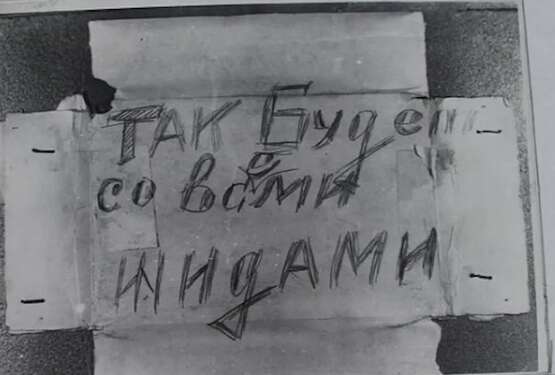 ТАК Будет
со всеми
ЖИдАМИ